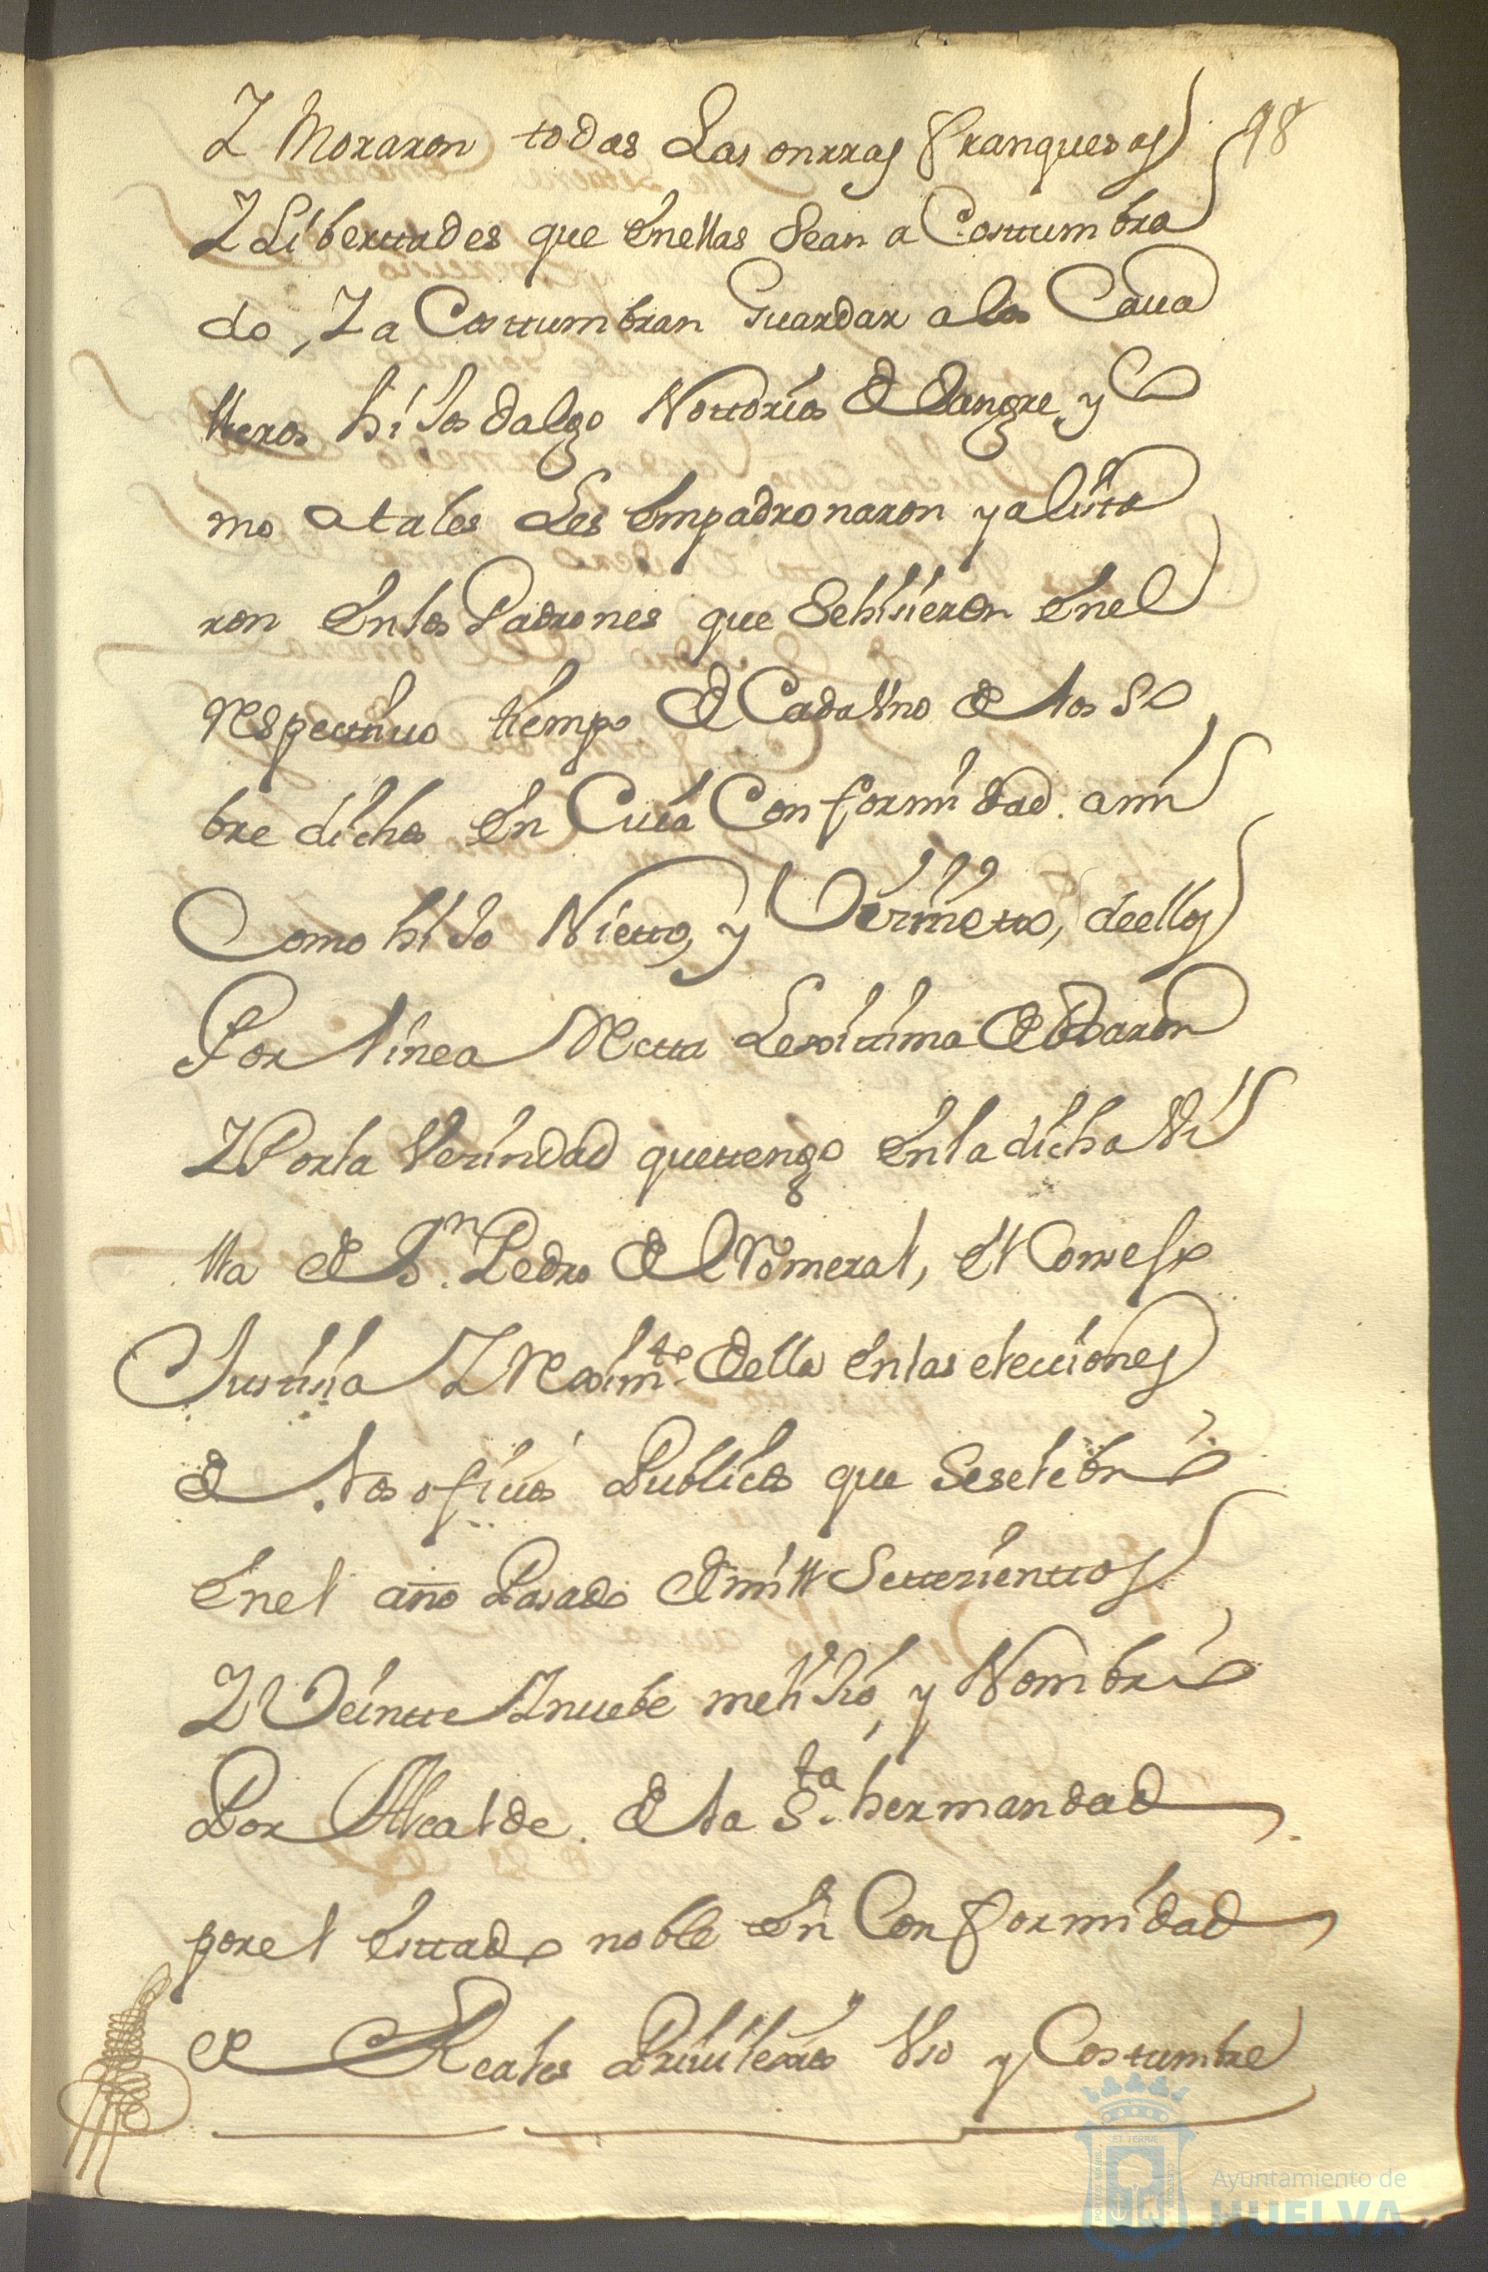 98
Y Moraron todas Las onrras franquesas
Y Libertades que Enellas Sean a Costtumbra
do, Y a Costtumbran Guardar a los Cava
lleros hiJos dalgo Nottorios de Sangre, y Co
mo a tales Les Empadronaron y alista
ron En los Padrones que Sehisieron Enel
respecttiuo tiempo de Cada Vno de los So
bre dichos En Cuia Conformidad. a mi
Como hiJo Nietto, y Visnietto, deellos
Por linea Rectta Lexittima de Varon
Y Por la Vesindad que ttengo En la dicha Vi
lla de Sn. Pedro de el Romeral, el Consejo
Justtisia Y Reximto. della En las elecciones
de los ofisios Publicos que Se selebró
Enel año Pasado de mill Settesienttos
Y Veintte Y nuebe me hiJió, y Nombró
Por Alcalde. de la Sta. hermandad
por el Esttado noble En Conformidad
de Reales Priuilexios Vso y Costumbre
Ayuntamiento de
HUELVA